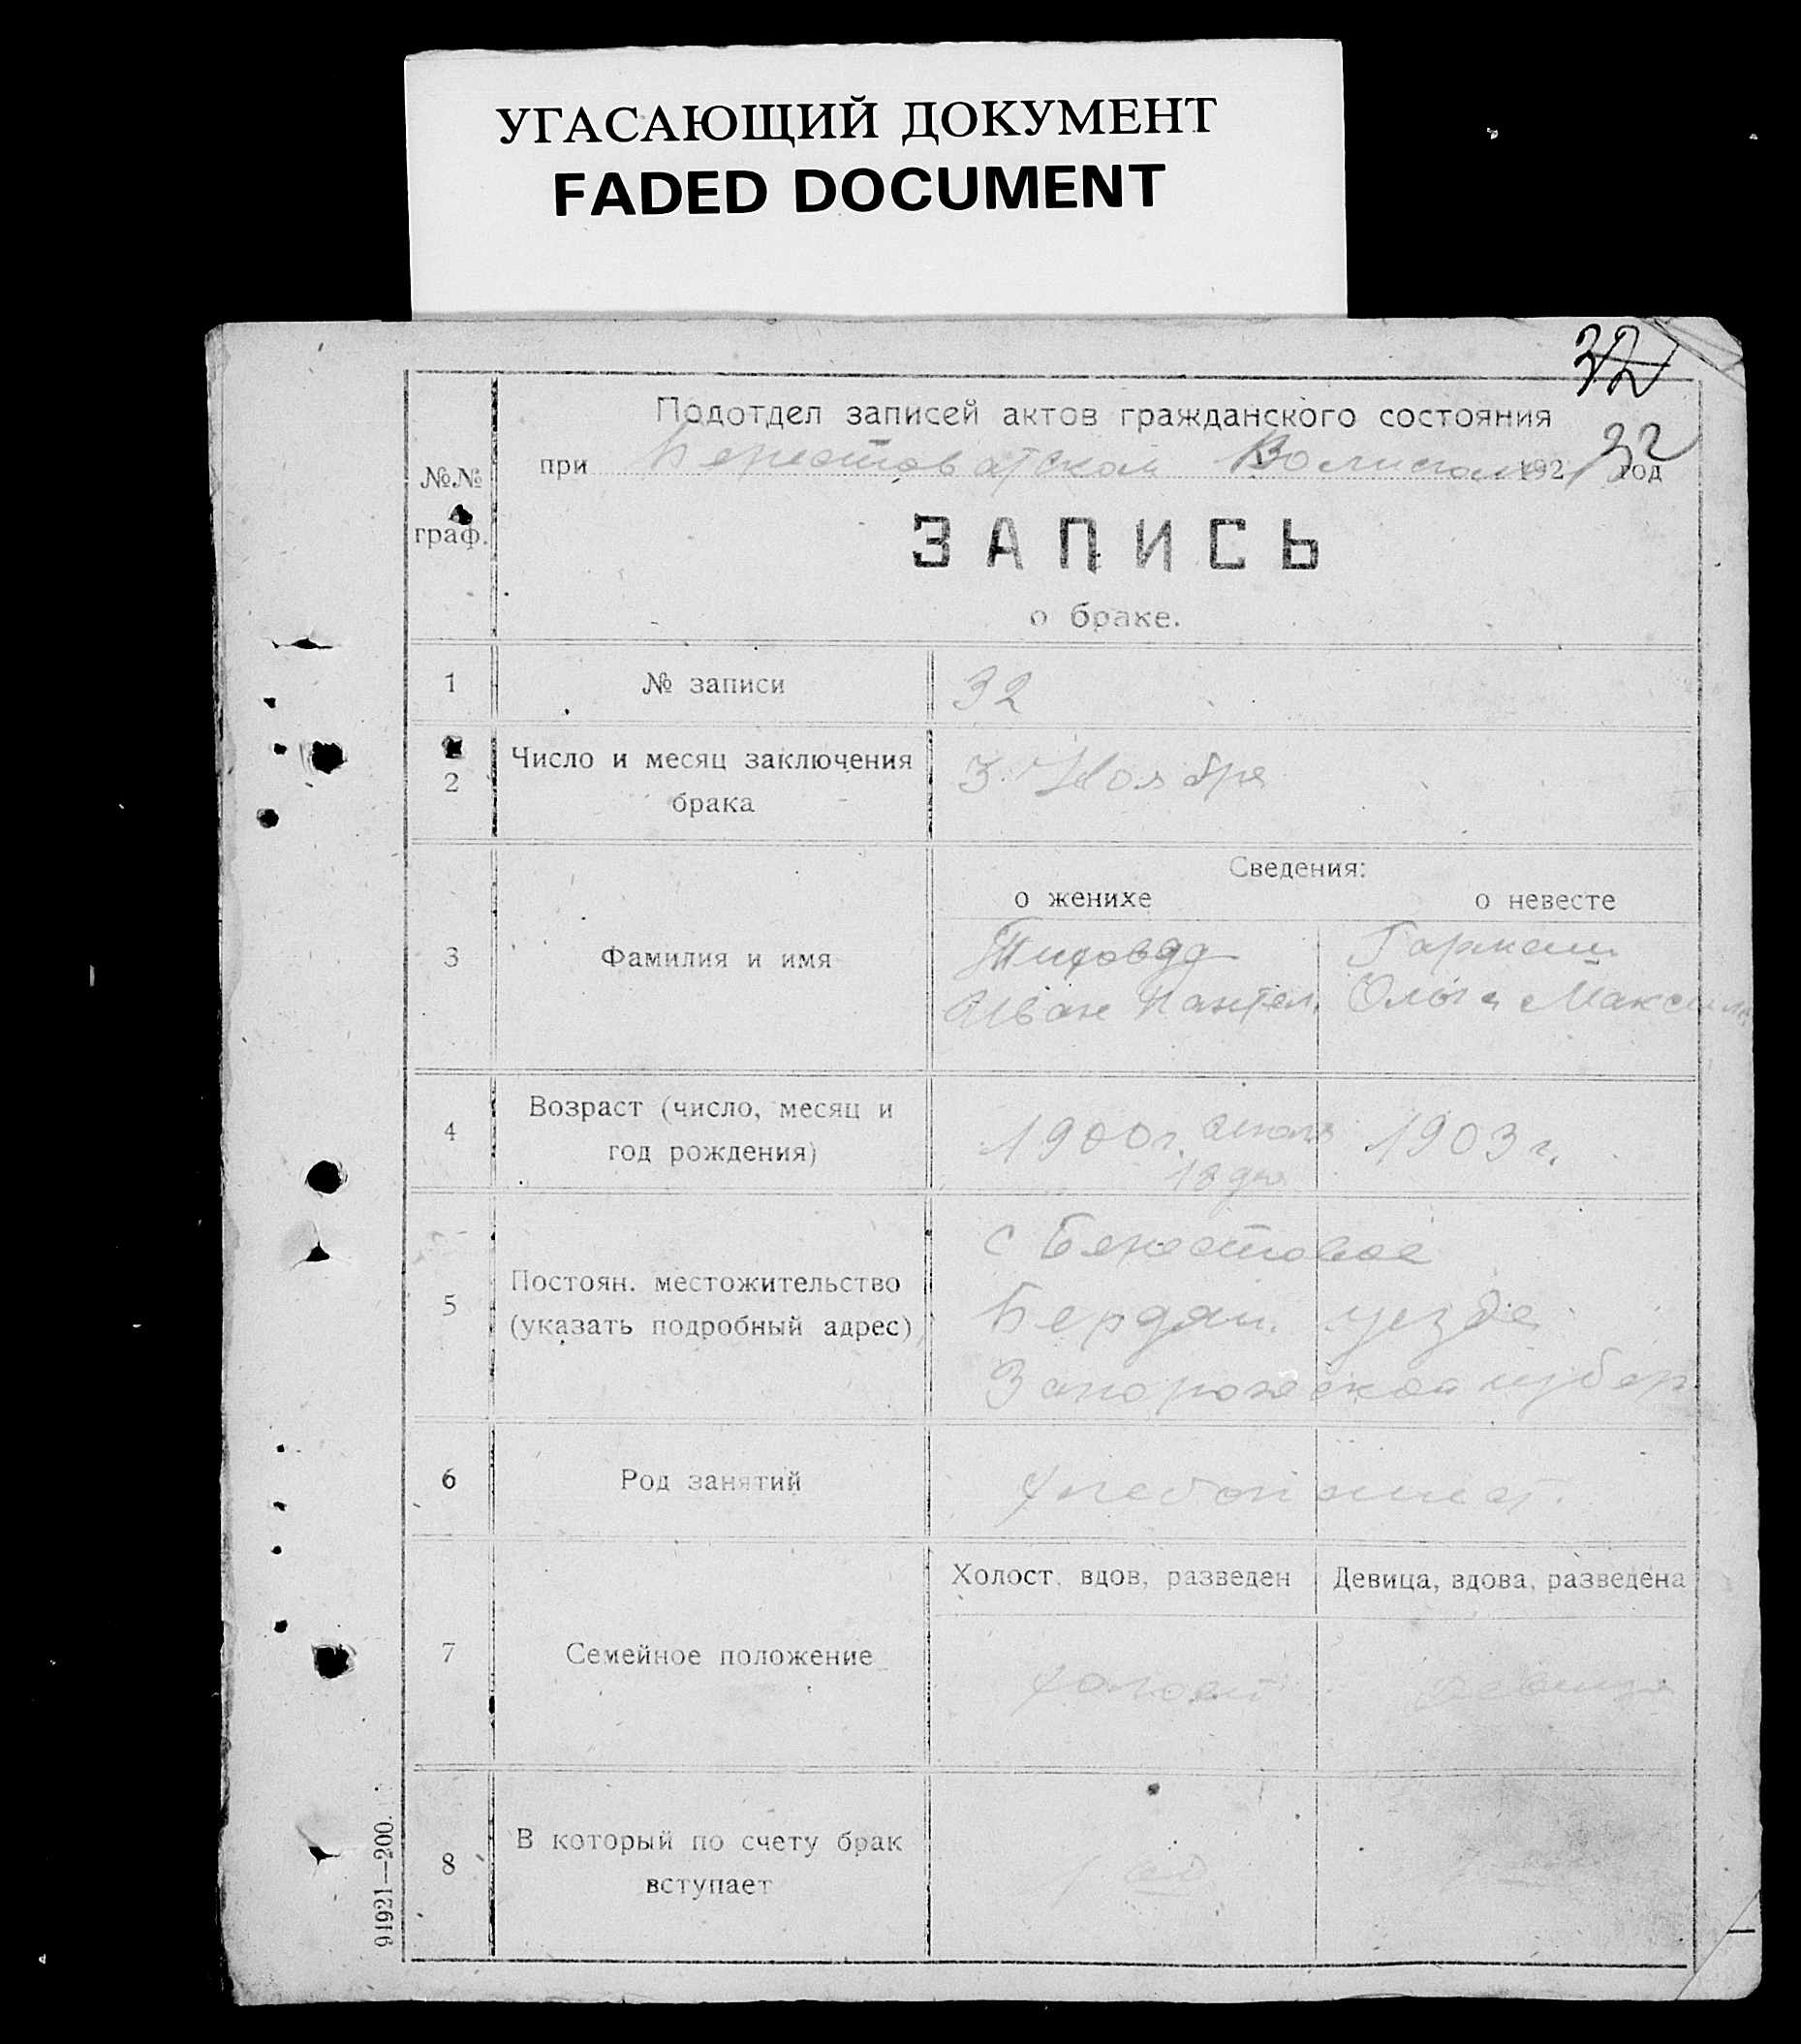 УГАСАЮЩИЙ ДОКУМЕНТ
FADED DOCUMENT
32
Подотдел записей актов гражданского состояния
№№ граф.
при Берестоватском 192 год
32
ЗАПИСЬ
о браке.
1 № записи 32
2 Число и месяц заключения брака 3 Ноября
Сведения:
о женихе о невесте
3 Фамилия и имя
Гармаш
Иван Пантел. Ольга Максим.
4 Возраст (число, месяц и
год рождения)
1900г. 1903г.
13 дня
5 Постоян. местожительство
(указать подробный адрес)
с Берестовое
Бердян. уезда
Запорожской губер.
6 Род занятий хлебопашест.
Холост, вдов, разведен Девица, вдова, разведена
7 Семейное положение холост девица
8 В который по счету брак
вступает
94921—200.